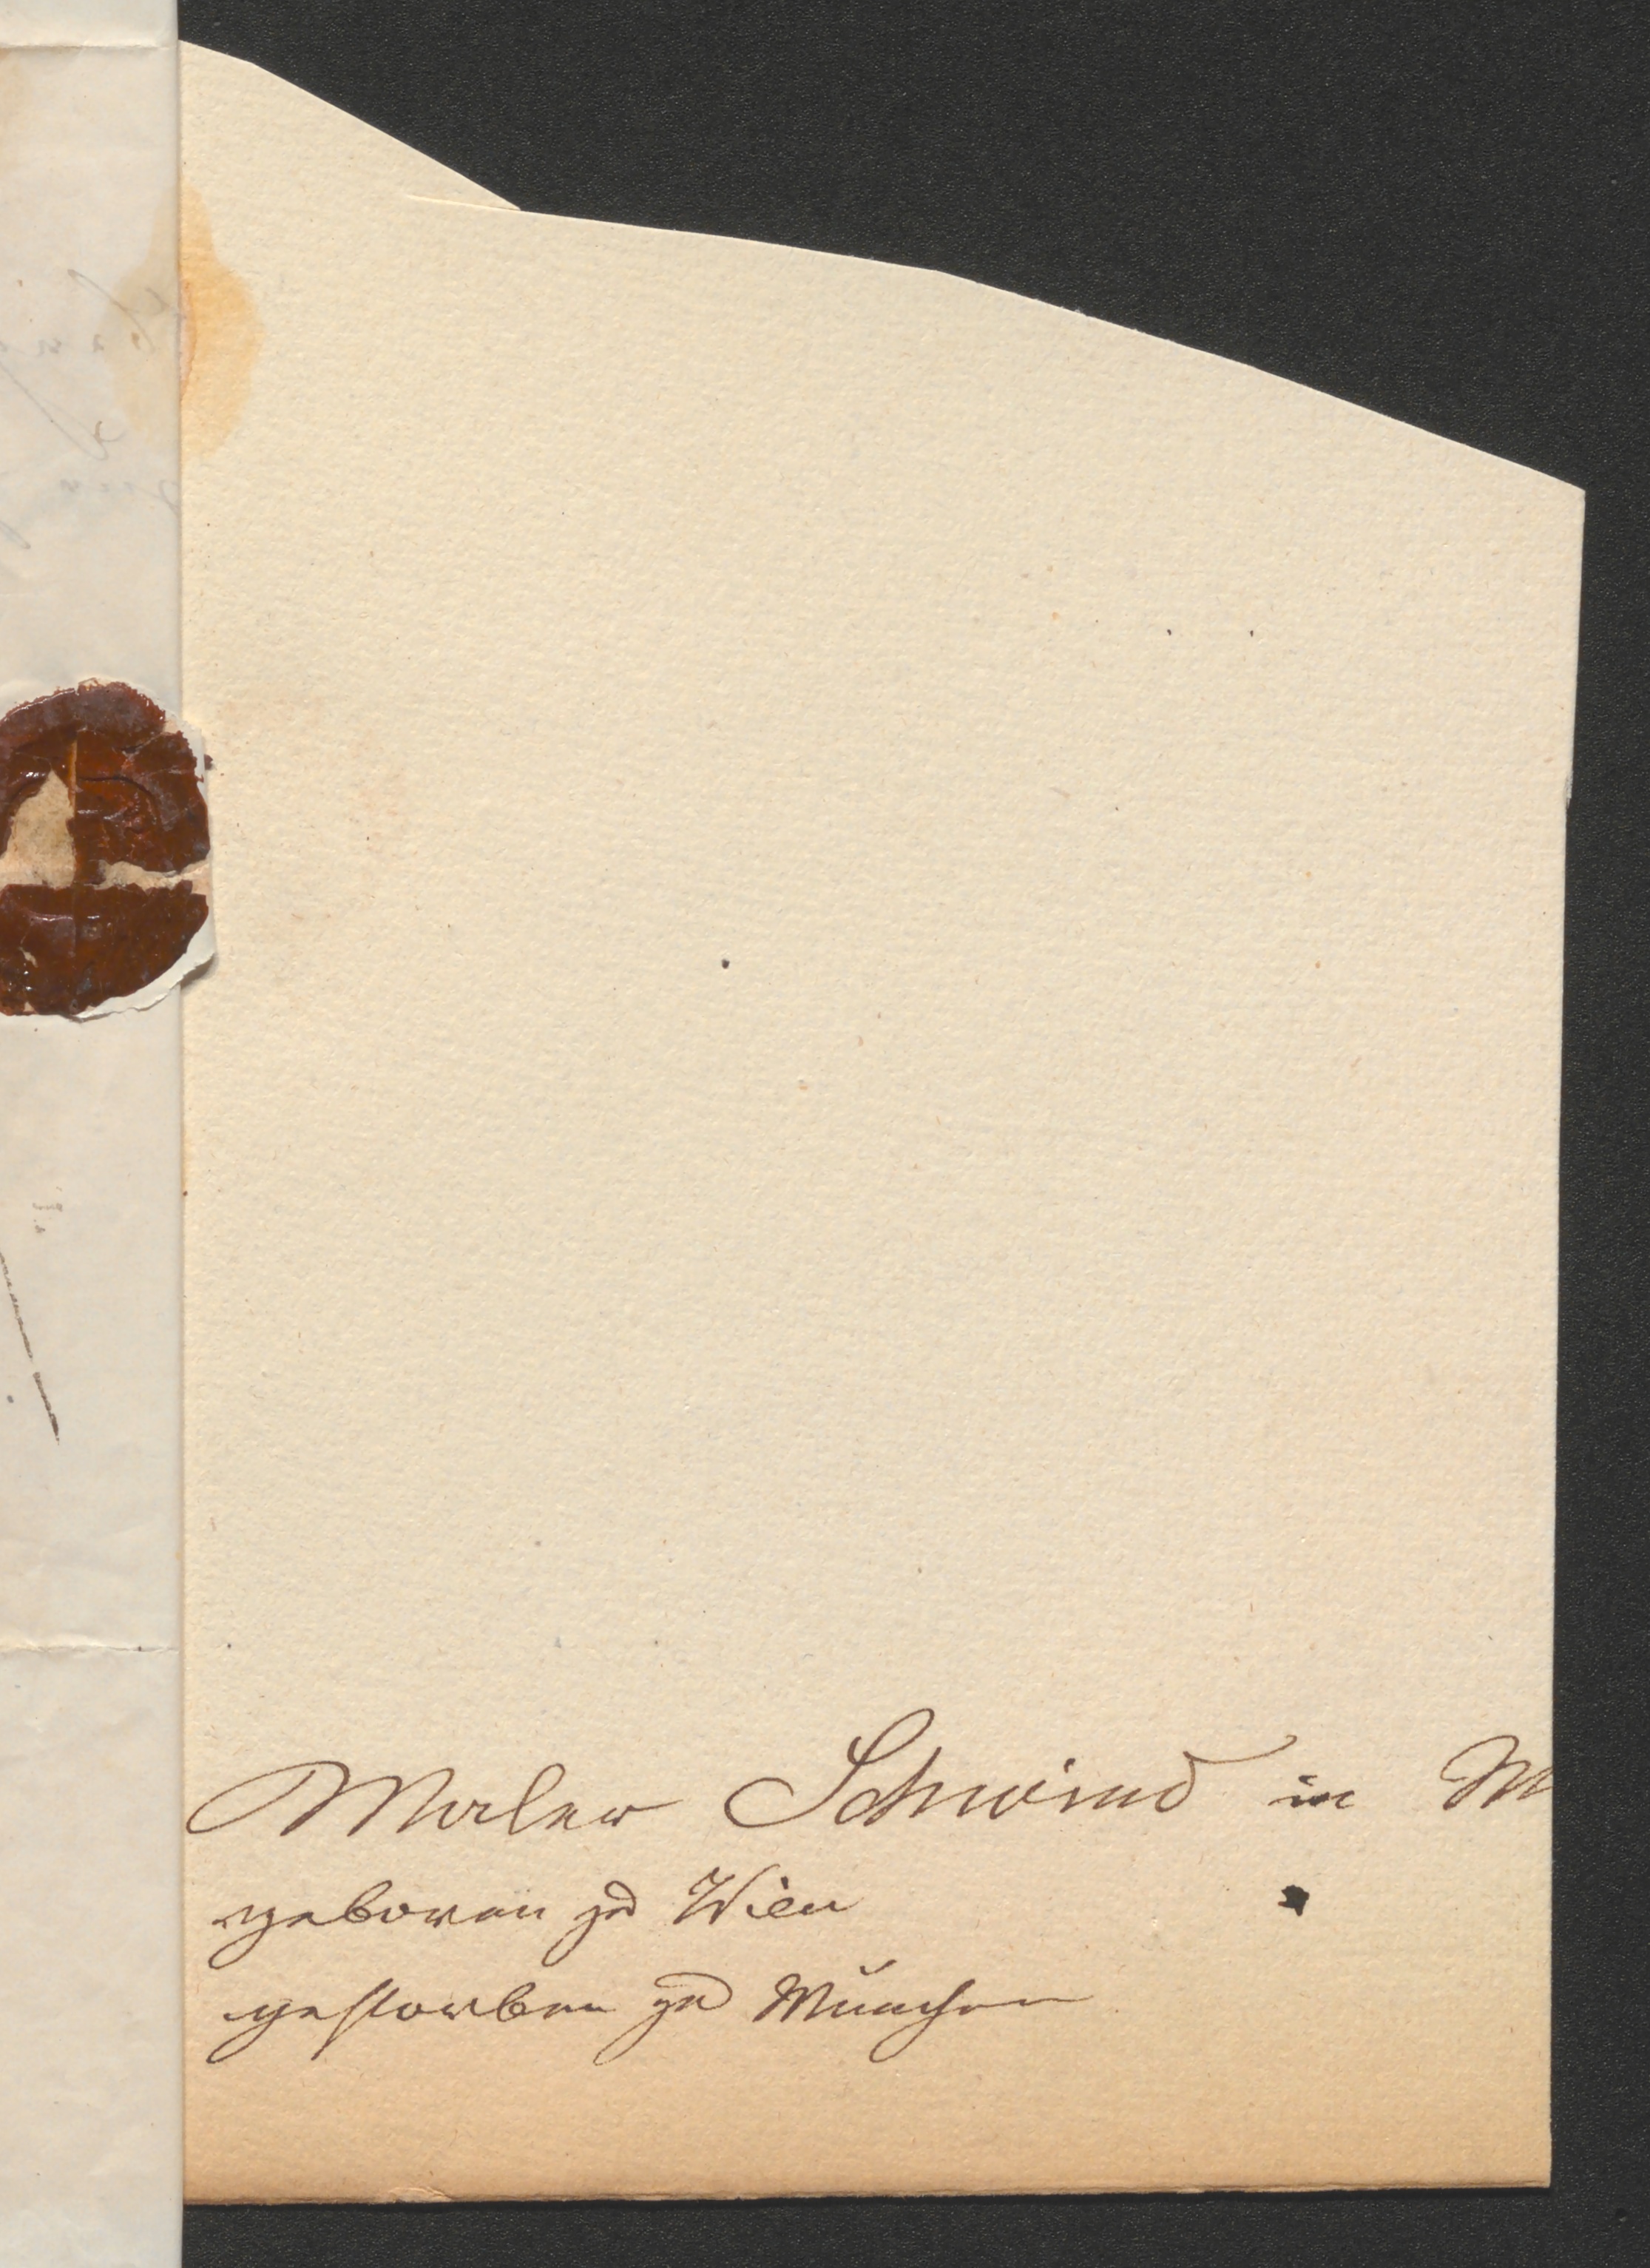 Maler Schwind in M
geboren zu Wien
gestorben zu München